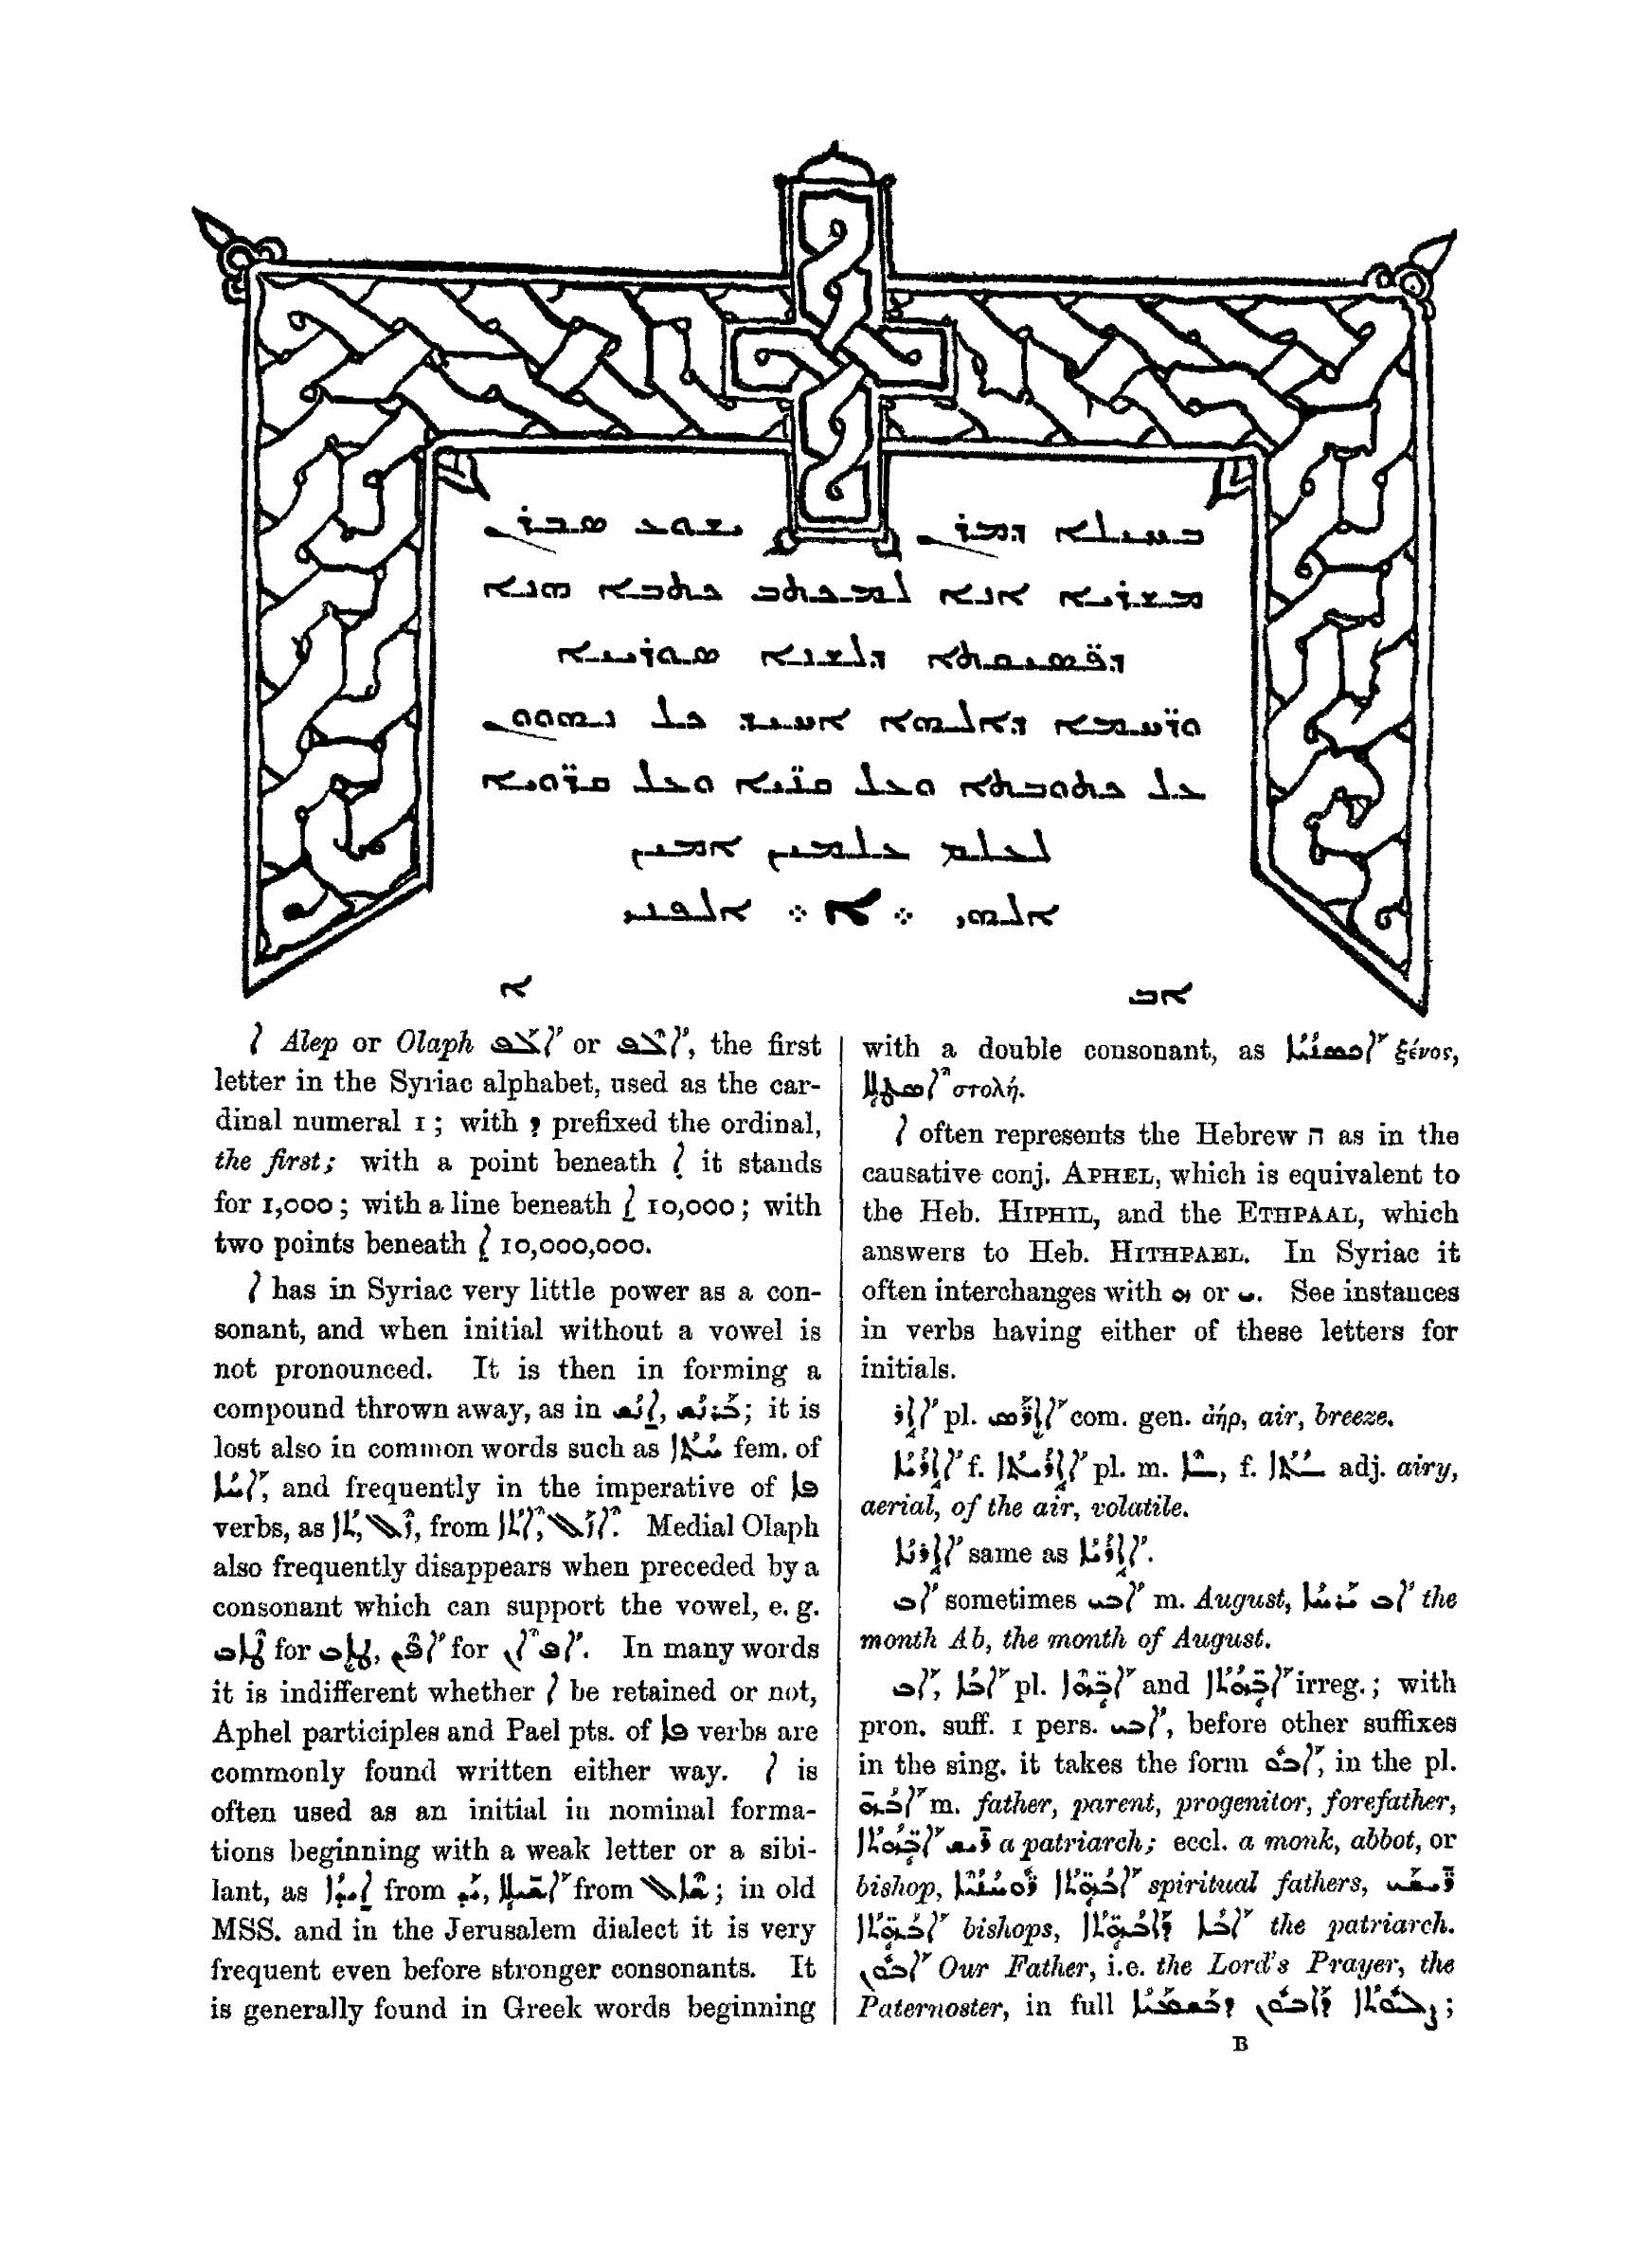 ܒܚܝܠܐ ܕܡܪܢ ܝܫܘܥ ܣܒܪܢ
ܡܫܪܝܐ ܐܢܐ ܠܡܟܬܒ ܟܬܒܐ ܗܢܐ
ܕܠܫܢܐ ܣܘܪܝܝܐ
ܘܪ̈ܚܡܐ ܕܐܠܗܐ ܐܚܝܕ ܟܠ ܢܗܘܘܢ
ܥܠ ܟܬܘܒܬܐ ܘܥܠ ܩܢ̈ܝܐ ܘܥܠ ܩܪ̈ܘܝܐ
ܠܥܠܡ ܥܠܡܝܢ ܐܡܝܢ
ܐܠܗܝ ܀ ܐ ܀ ܐܠܦܝܢܝ
ܐ
ܐ Alep or Olaph ܐܠܦ or ܐܠܦ, the first
letter in the Syriac alphabet, used as the car-
dinal numeral 1; with ܕ prefixed the ordinal,
the first; with a point beneath ܐ̣ it stands
for 1,000; with a line beneath ܐ̱ 10,000; with
two points beneath ܐ 10,000,000.
ܐ has in Syriac very little power as a con-
sonant, and when initial without a vowel is
not pronounced. It is then in forming a
compound thrown away, as in ܐܢܫ, ܒܪܢܫ; it is
lost also in common words such as ܚܬܐ fem. of
ܐܚܐ, and frequently in the imperative of ܦܐ
verbs, as ܬܐ, ܙܠ, from ܐܬܐ, ܐܙܠ. Medial Olaph
also frequently disappears when preceded by a
consonant which can support the vowel, e. g.
ܛܒ for ܛܐܒ, for ܐܦ ܐܢ. In many words
it is indifferent whether ܐ be retained or not,
Aphel participles and Pael pts. of ܦܐ verbs are
commonly found written either way. ܐ is
often used as an initial in nominal forma-
tions beginning with a weak letter or a sibi-
lant, as ܐܝܕܐ from ܝܕ, from ; in old
MSS. and in the Jerusalem dialect it is very
frequent even before stronger consonants. It
is generally found in Greek words beginning
ܐܒ
with a double consonant, as ܐܟܣܢܝܐ ξένος,
ܐܣܛܠܐ στολή.
ܐ often represents the Hebrew ה as in the
causative conj. APHEL, which is equivalent to
the Heb. HIPHIL, and the ETHPAAL, which
answers to Heb. HITHPAEL. In Syriac it
often interchanges with ܘ or ܝ. See instances
in verbs having either of these letters for
initials.
ܐܐܪ pl. ܐܐܪ̈ܣ com. gen. ἀήρ, air, breeze.
ܐܐܪܝܐ f. ܐܐܪܝܬܐ pl. m. ܝܐ, f. ܝܬܐ adj. airy,
aerial, of the air, volatile.
ܐܐܪܢܝܐ same as ܐܐܪܝܐ.
ܐܒ sometimes ܐܒܝ m. August, ܐܒ ܝܪܚܐ the
month Ab, the month of August.
ܐܒ, ܐܒܐ pl. ܐܒ̈ܗܐ and ܐܒ̈ܗܬܐ irreg.; with
pron. suff. 1 pers. ܐܒܝ, before other suffixes
in the sing. it takes the form ܐܒܘ, in the pl.
m. father, parent, progenitor, forefather,
ܪܝܫ ܐܒ̈ܗܬܐ a patriarch; eccl. a monk, abbot, or
bishop, ܐܒ̈ܗܬܐ ܪ̈ܘܚܢܐ spiritual fathers, ܪ̈ܝܫܝ
ܐܒ̈ܗܬܐ bishops, ܐܒܐ ܕܐܒ̈ܗܬܐ the patriarch.
ܐܒܘܢ Our Father, i.e. the Lord's Prayer, the
Paternoster, in full ܨܠܘܬܐ ܕܐܒܘܢ ܕܒܫܡܝܐ;
B